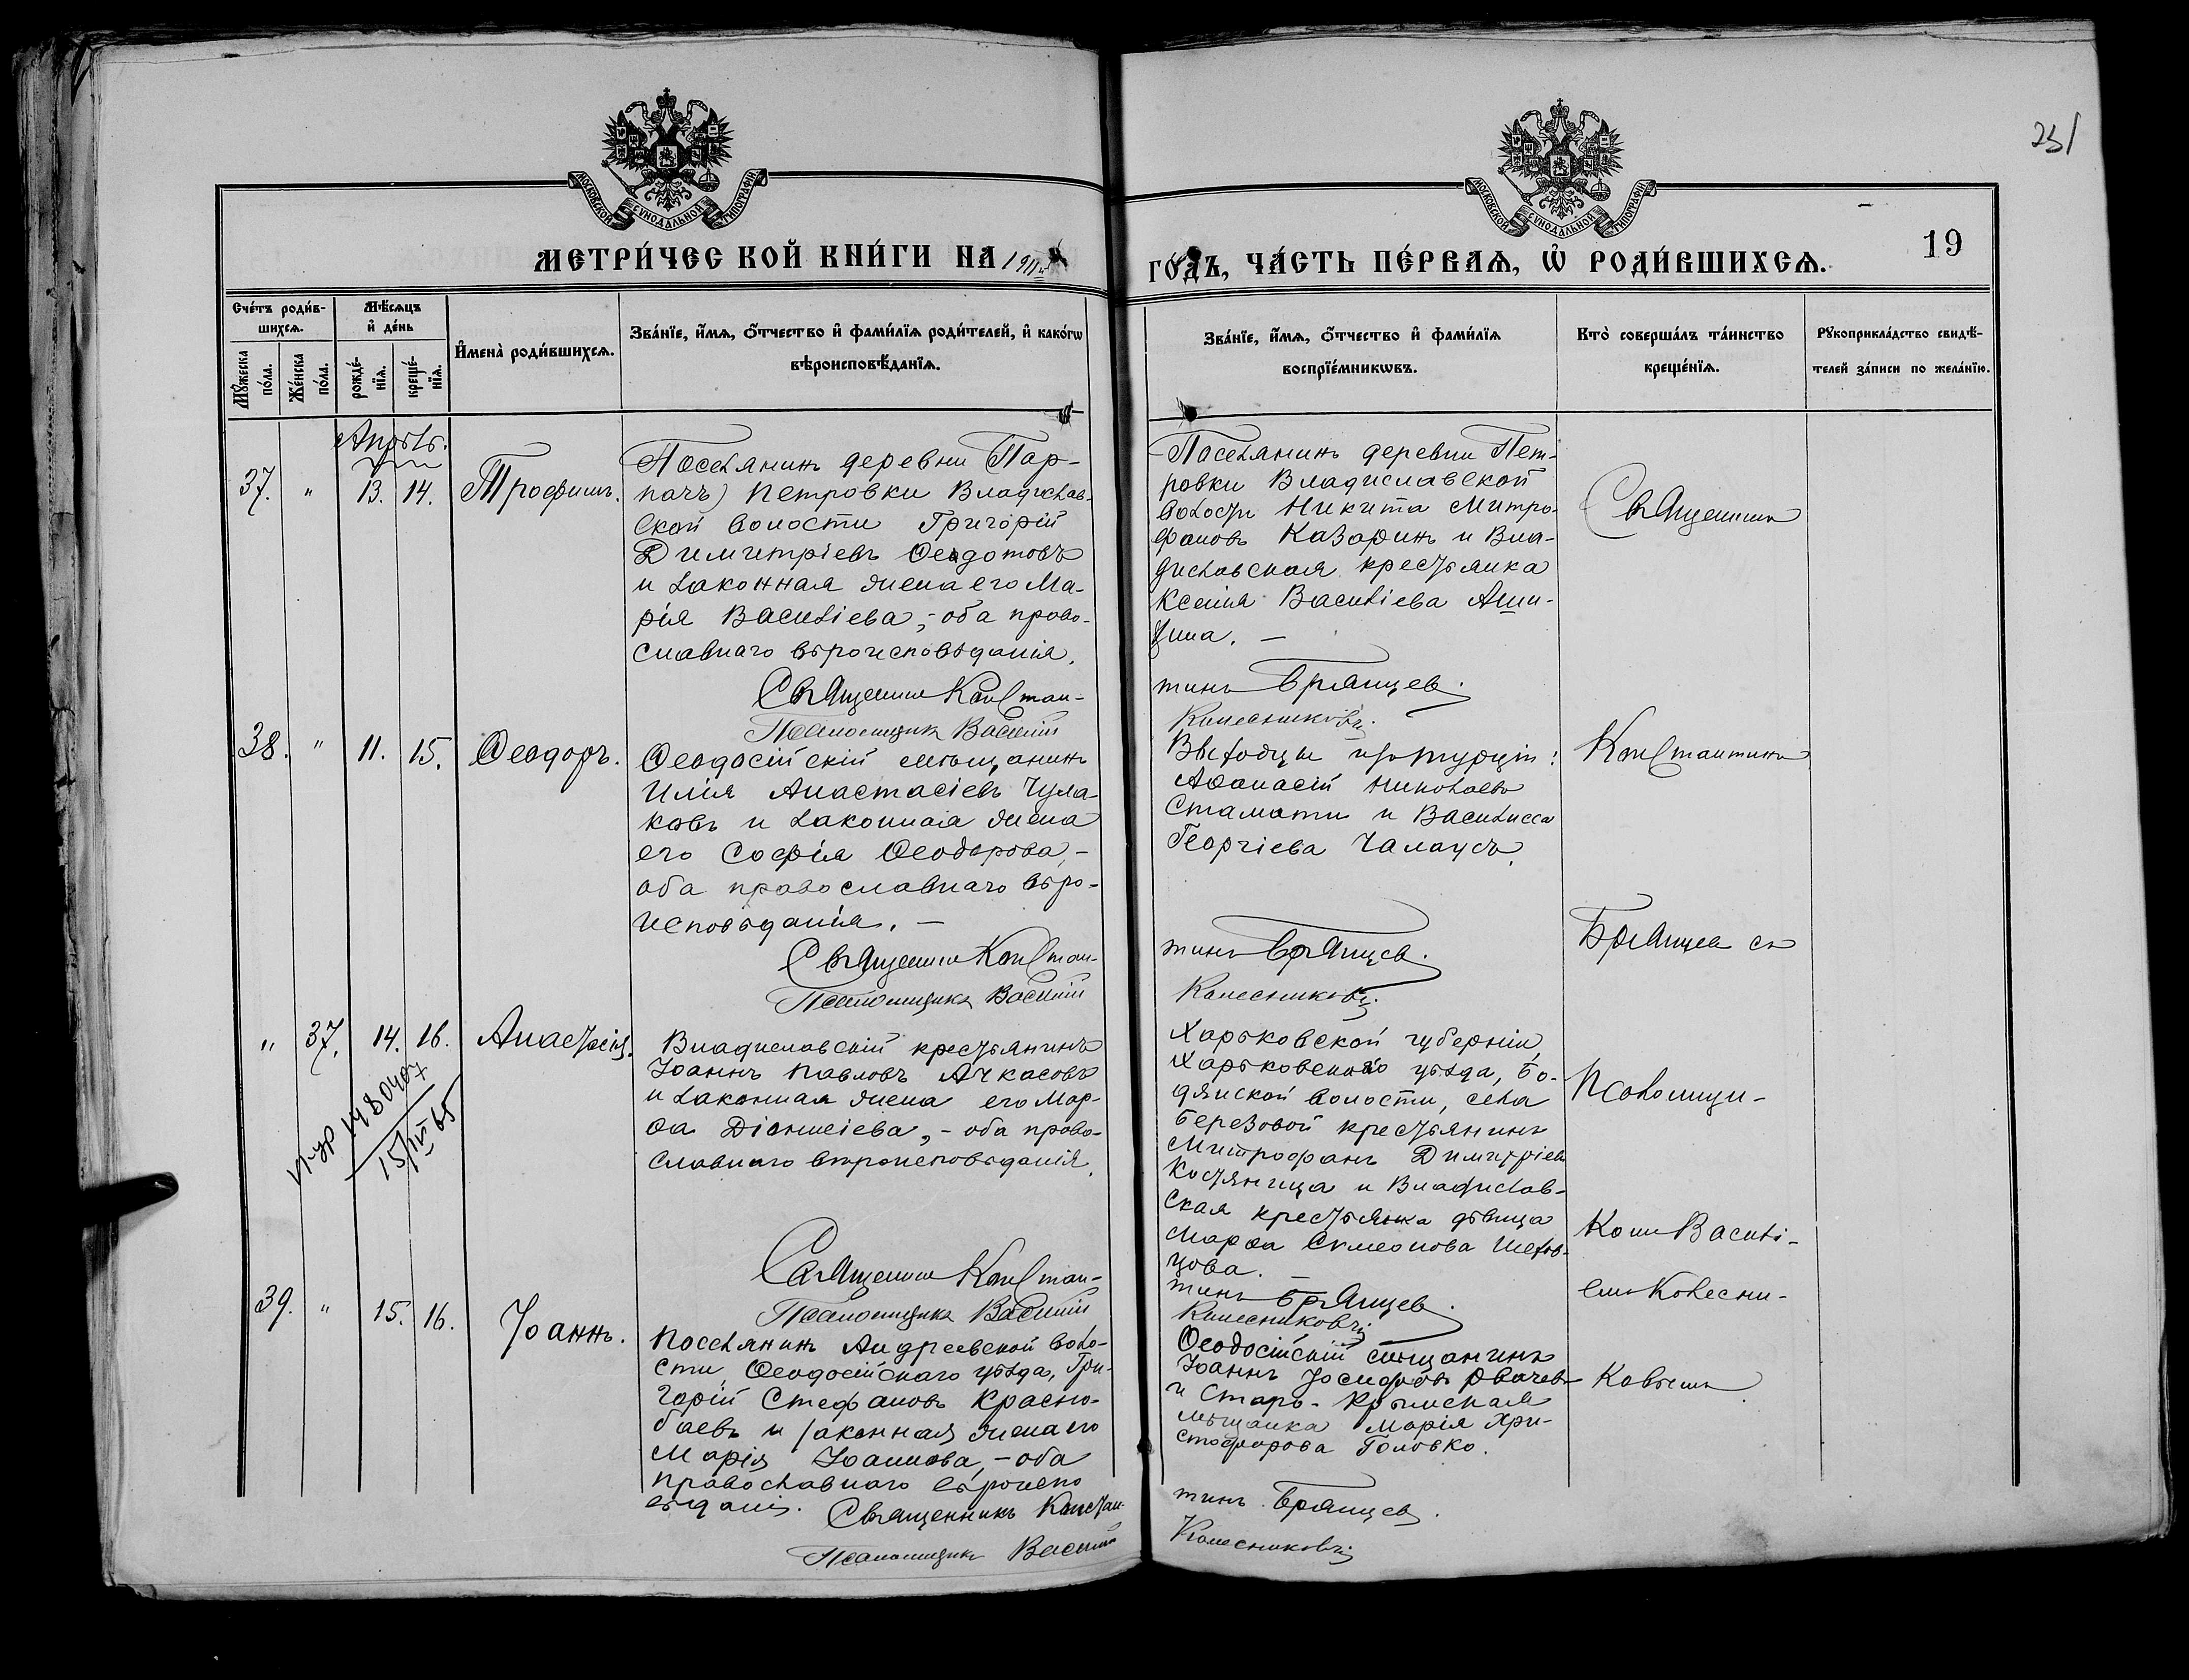 251
19
МОСКОВСКОЙ СѴНОДАЛЬНОЙ ТИПОГРАФІИ
МОСКОВСКОЙ СѴНОДАЛЬНОЙ ТИПОГРАФІИ
МЕТРИ́ЧЕСКОЙ КНИ́ГИ НА 1911
ГО́ДЪ, ЧА́СТЬ ПЕ́РВАѦ, Ѡ҆ РОДИ́ВШИХСѦ.
Сче́тъ роди́в-
шихсѧ.
Мꙋ́жеска
по́ла.
Же́нска
по́ла.
Мѣ́сѧцъ
и҆ де́нь
рожде́-
нїѧ.
креще́-
нїѧ.
И҆мена̀ роди́вшихсѧ.
Зва́нїе, и҆́мѧ, ѻ҆́тчество и҆ фами́лїѧ роди́телей, и҆ како́гѡ
вѣроисповѣ́данїѧ.
Зва́нїе, и҆́мѧ, ѻ҆́тчество и҆ фами́лїѧ
воспрїе́мникѡвъ.
Кто̀ соверша́лъ та́инство
креще́нїѧ.
Рꙋкоприкла́дство свидѣ́-
телей за́писи по жела́нїю.
Апрѣль.
37. " 13. 14. Трофимъ.
Поселянинъ деревни Пар-
пачъ) Петровки Владислав-
ской волости Григорій
Димитріевъ Ѳедотовъ
и законная жена его Ма-
рія Василіева, - оба право-
славнаго вѣроисповѣданія.
Священникъ Констан-
Псаломщикъ Василій
Поселянинъ деревни Пет-
ровки Владиславской
волости Никита Митро-
фановъ Казаринъ и Вла-
диславская крестьянка
Ксенія Василіева
тинъ Брянцев.
Колесниковъ.
Священник
38. " 11. 15. Ѳеодоръ.
Ѳеодосійскій мѣщанинъ
Илія Анастасіевъ Чула-
ковъ и законная жена
его Софія Ѳеодорова, -
оба православнаго вѣро-
исповѣданія. -
Священникъ Констан-
Псаломщикъ Василій
Выходцы изъ Турціи:
Аѳанасій Николаевъ
Стамати и Василисса
Георгіева Чалаусъ.
тинъ Брянцев.
Колесниковъ.
Константинъ
Брянцев съ
" 37. 14. 16. Анастасія.
1480407
15/III 65
Владиславскій крестьянинъ
Іоаннъ Павловъ Ачкасовъ
и законная жена его Мар-
ѳа Діонисіева, - оба право-
славнаго вѣроисповѣданія.
Священникъ Констан-
Псаломщикъ Василій
Харьковской губерніи,
Харьковскаго уѣзда, Бо-
дянской волости, села
Березовой крестьянинъ
Митрофанъ Димитріевъ
Костяница и Владислав-
ская крестьянка дѣвица
Марѳа Симеонова Шехов-
цова. -
тинъ Брянцев.
Колесниковъ
Псаломщи-
ком Василі-
емъ Колесни-
39. " 15. 16. Іоаннъ.
Поселянинъ Андреевской воло-
сти, Ѳеодосійскаго уѣзда, Гри-
горій Стефановъ Красно-
баевъ и законная жена его
Марія Іоаннова, - оба
православнаго вѣроиспо
вѣданія. Священникъ Констан-
Псаломщикъ Василій
Ѳеодосійскій мѣщанинъ
Іоаннъ Іосифовъ
и Старо-Крымская
мѣщанка Марія Хри-
стофорова Головко.
тинъ Брянцев.
Колесниковъ
ковымъ